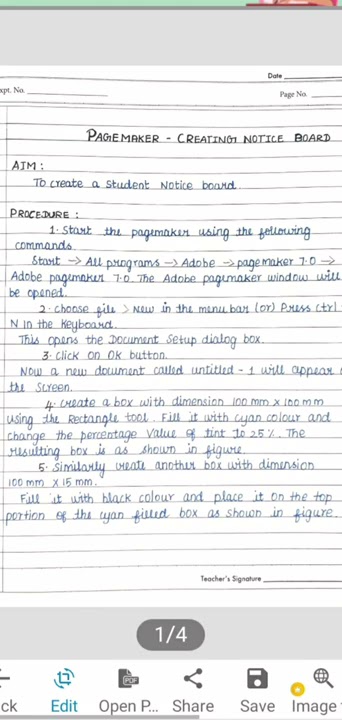 Date
xpt. No.
Page No.
PAGEMAKER - CREATING NOTICE BOARD
AIM :
To create a Student Notice board.
PROCEDURE :
1. Start the pagemaker using the following
commands.
Start -> All programs -> Adobe -> pagemaker 7.0 ->
Adobe pagemaker 7.0. The Adobe pagemaker window will
be opened.
2. choose file > New in the menu bar (or) Press Ctrl
N in the Keyboard.
This opens the Document Setup dialog box.
3. click on Ok button.
Now a new document called untitled - 1 will appear
the Screen.
4. Create a box with dimension 100 mm x 100 mm
using the Rectangle tool. Fill it with cyan colour and
change the percentage Value of tint to 25%. The
resulting box is as shown in figure.
5. Similarly create another box with dimension
100 mm X 15 mm.
Fill it with black colour and place it on the top
portion of the cyan filled box as shown in figure.
Teacher's Signature
1/4
PDF
ck Edit Open P... Share Save Image